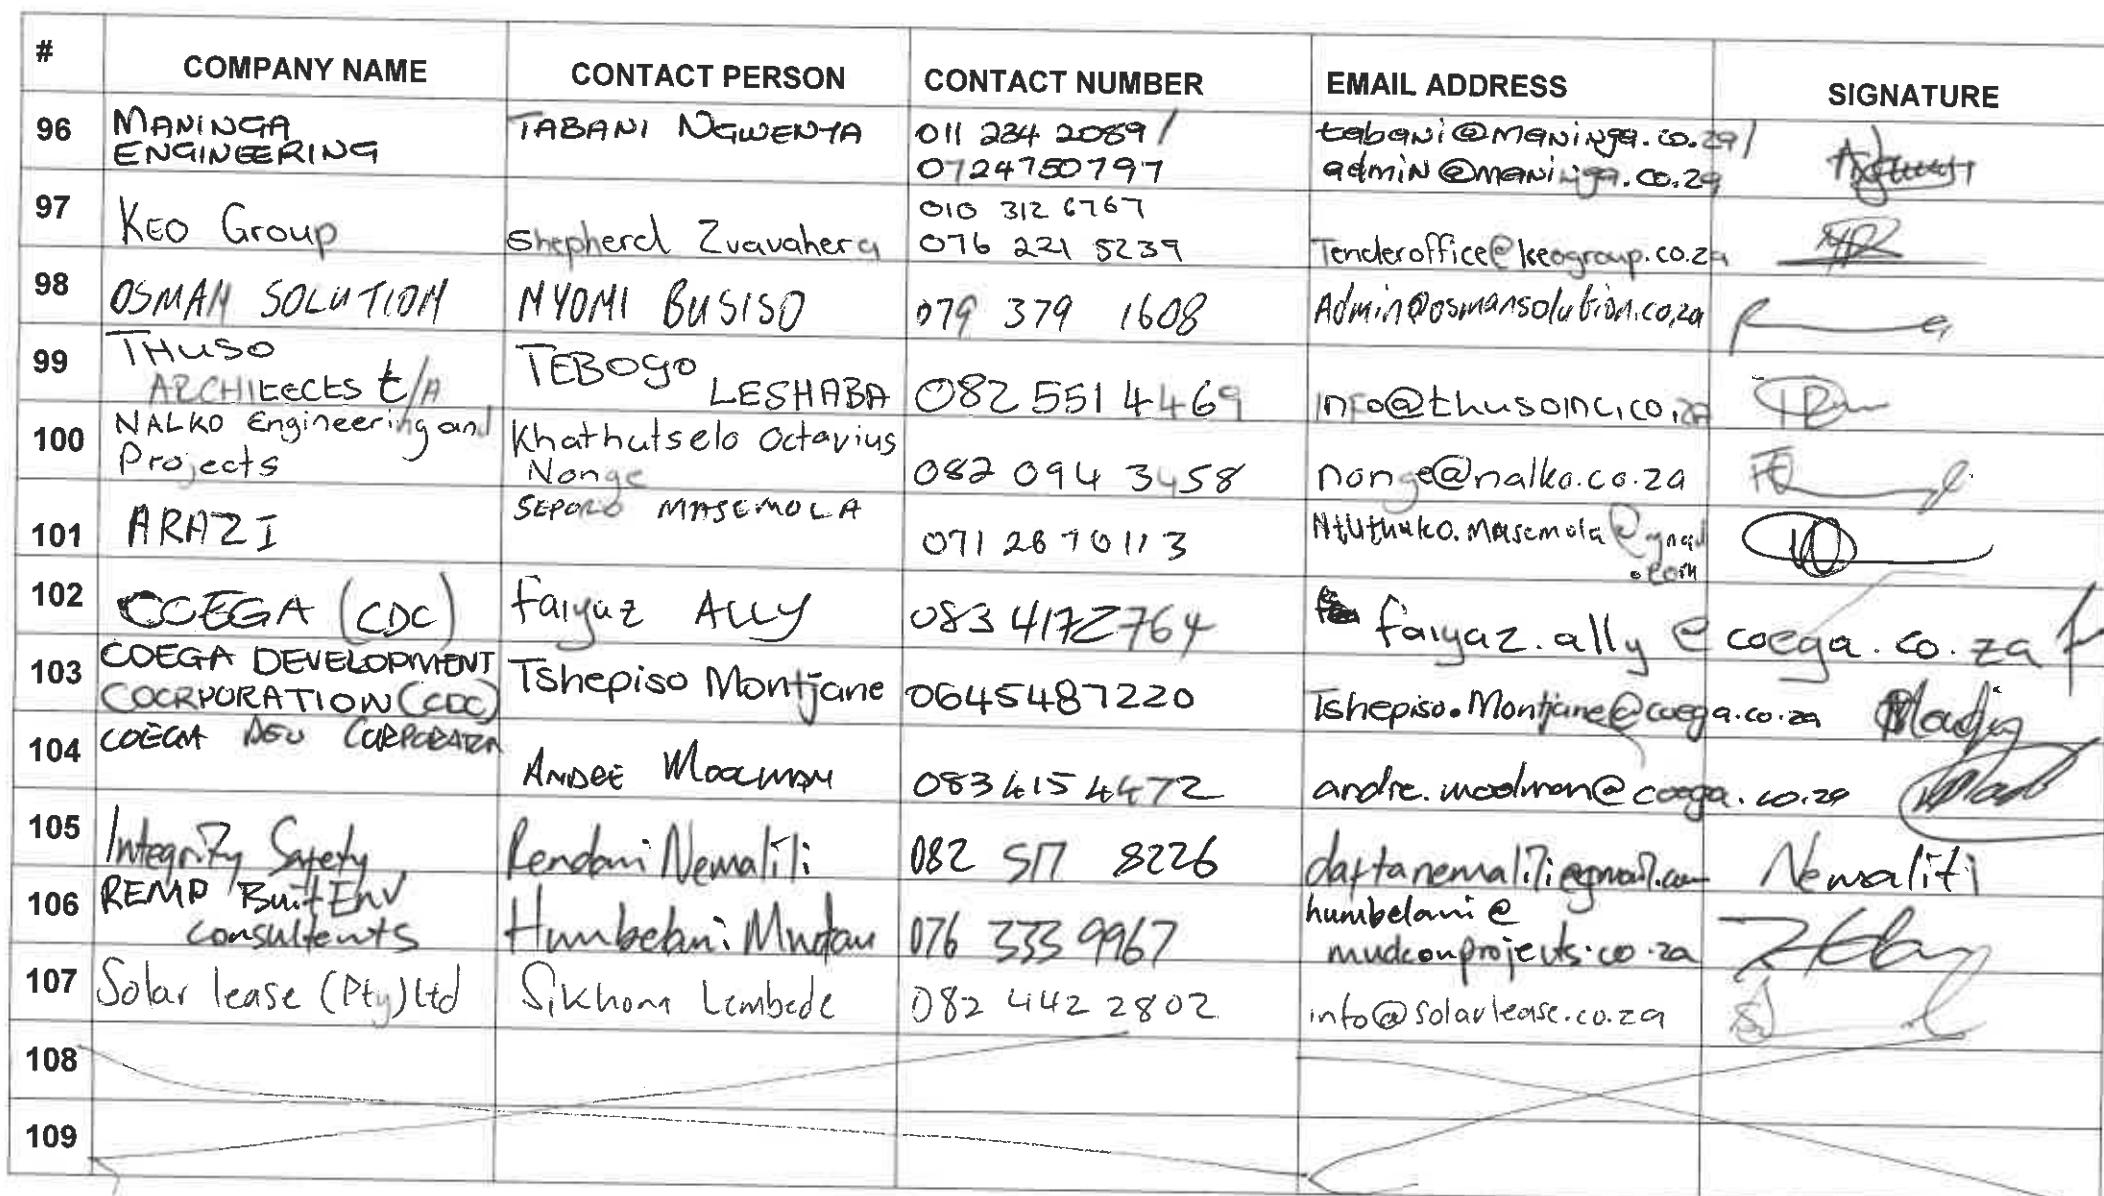 # COMPANY NAME CONTACT PERSON CONTACT NUMBER EMAIL ADDRESS SIGNATURE
96 MANINGA ENGINEERING TABANI NGWENYA 011 234 2089 / 0724750797 tabani@maninga.co.za / admin@maninga.co.za
97 KEO Group Shepherd Zvavahera 010 312 6767 076 221 5239 Tenderoffice@keogroup.co.za
98 OSMAN SOLUTION NYOMI BUSISO 079 379 1608 Admin@osmansolution.co.za
99 THUSO ARCHITECTS t/A TEBOGO LESHABA 082 551 4469 info@thusoinc.co.za
100 NALKO Engineering and Projects Khathutselo Octavius Nonge 082 094 3458 nonge@nalko.co.za
101 ARAZI MASEMOLA 071 267 0113 Ntuthuko.masemola@gmail.com
102 COEGA (CDC) faiyaz ALLY 083 4172764 faiyaz.ally@coega.co.za
103 COEGA DEVELOPMENT COCRPORATION (CDC) Tshepiso Montjane 0645487220 Tshepiso.Montjane@coega.co.za
104 COEGA DEV CORPORATION ANDRE MOOLMAN 083 415 4472 andre.moolman@coega.co.za
105 Integrity Safety Rendani Nemalili 082 517 8226 daftanemalili@gmail.com Nemaliti
106 REMP BuitEnv consultents Humbelani Mudau 076 333 9967 humbelani@mudconprojects.co.za
107 Solar lease (Pty) Ltd Sikhona Lembede 082 442 2802 info@solarlease.co.za
108
109